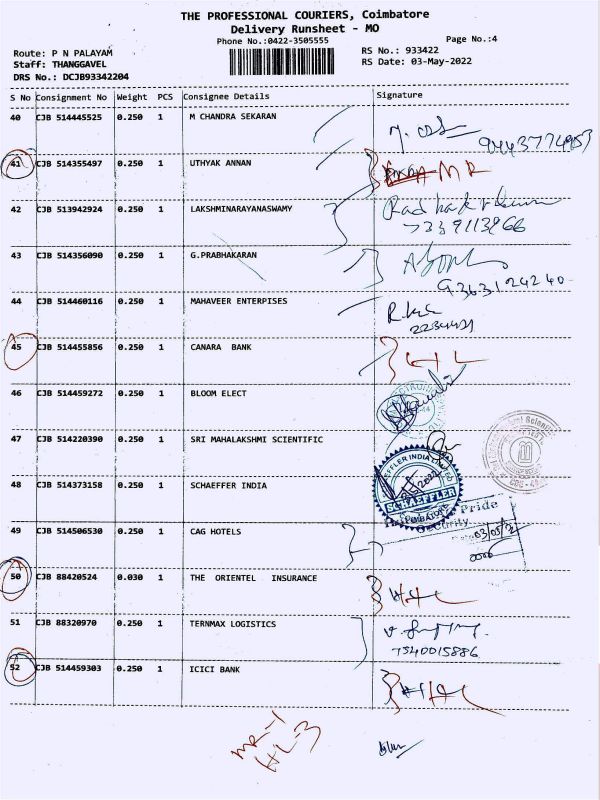 THE PROFESSIONAL COURIERS, Coimbatore
Delivery Runsheet - MO
Phone No.:0422-3505555
Page No.:4
Route: P N PALAYAM
RS No.: 933422
Staff: THANGGAVEL
RS Date: 03-May-2022
DRS No.: DCJB93342204
S No Consignment No Weight PCS Consignee Details Signature
40 CJB 514445525 0.250 1 M CHANDRA SEKARAN
41 CJB 514355497 0.250 1 UTHYAK ANNAN MR
42 CJB 513942924 0.250 1 LAKSHMINARAYANASWAMY
7339113866
43 CJB 514356090 0.250 1 G.PRABHAKARAN
9363124240
44 CJB 514460116 0.250 1 MAHAVEER ENTERPISES
45 CJB 514455856 0.250 1 CANARA BANK HL
46 CJB 514459272 0.250 1 BLOOM ELECT
47 CJB 514220390 0.250 1 SRI MAHALAKSHMI SCIENTIFIC
48 CJB 514373158 0.250 1 SCHAEFFER INDIA
SCHAEFFLER
49 CJB 514506530 0.250 1 CAG HOTELS
Pride
50 CJB 88420524 0.030 1 THE ORIENTEL INSURANCE
51 CJB 88320970 0.250 1 TERNMAX LOGISTICS
7540015886
52 CJB 514459303 0.250 1 ICICI BANK
MR-1
HL-3